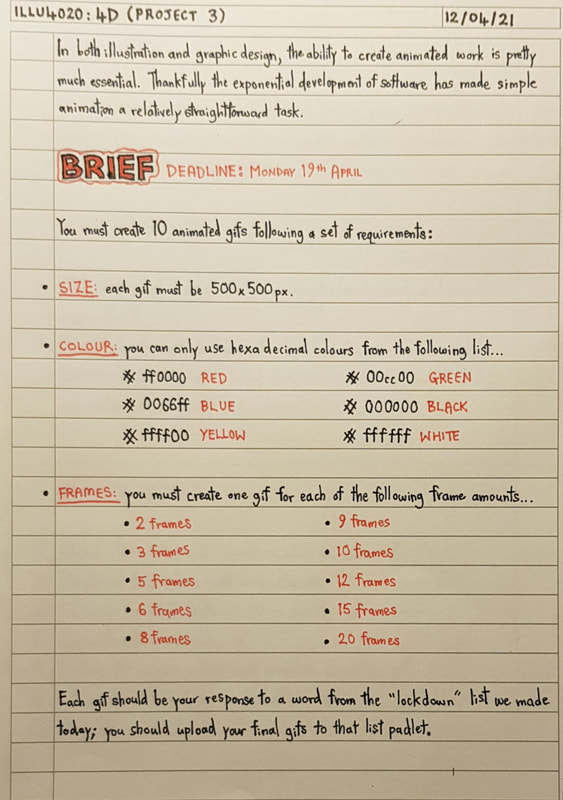 ILLU4020: 4D (PROJECT 3) 12/04/21
In both illustration and graphic design, the ability to create animated work is pretty
much essential. Thankfully the exponential development of software has made simple
animation a relatively straightforward task.
BRIEF DEADLINE: MONDAY 19th APRIL
You must create 10 animated gifs following a set of requirements:
• SIZE: each gif must be 500x500px.
• COLOUR: you can only use hexa decimal colours from the following list...
# ff0000 RED # 00cc00 GREEN
# 0066ff BLUE # 000000 BLACK
# ffff00 YELLOW # ffffff WHITE
• FRAMES: you must create one gif for each of the following frame amounts...
• 2 frames • 9 frames
• 3 frames • 10 frames
• 5 frames • 12 frames
• 6 frames • 15 frames
• 8 frames • 20 frames
Each gif should be your response to a word from the "lockdown" list we made
today; you should upload your final gifs to that list padlet.